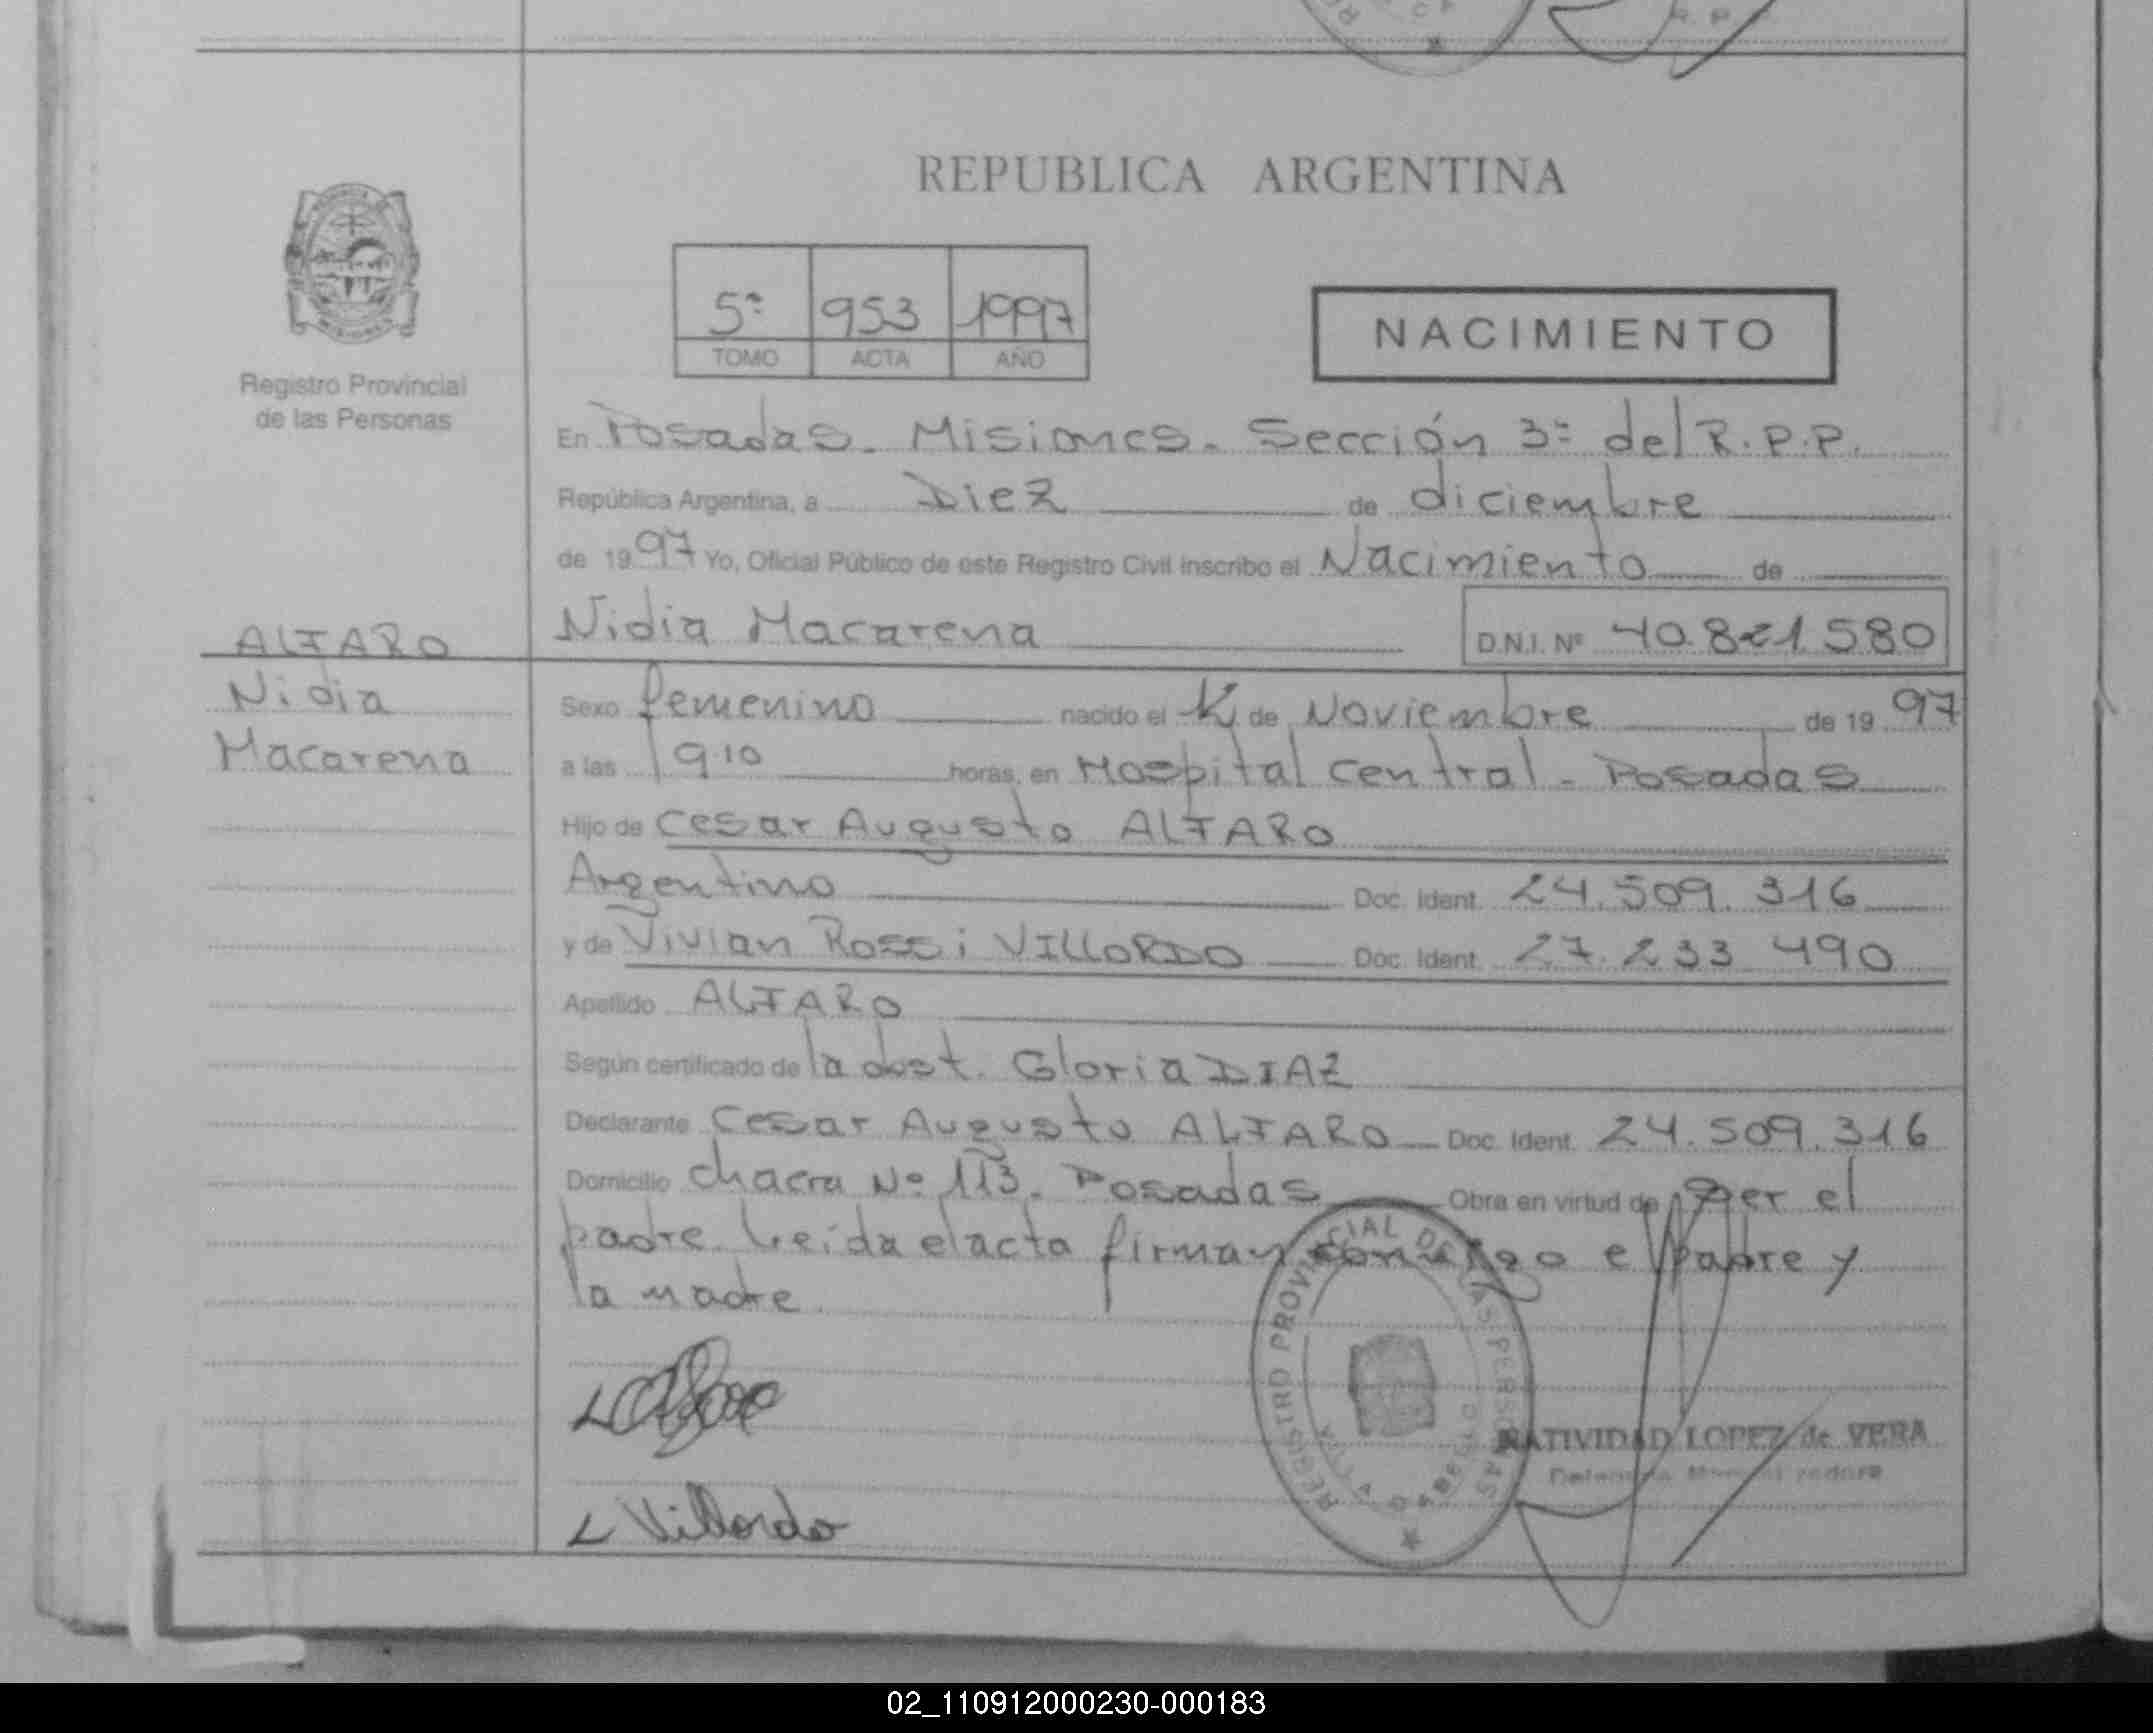 REPUBLICA ARGENTINA
5ª 953 1997
TOMO ACTA AÑO
NACIMIENTO
Registro Provincial
de las Personas
En Posadas - Misiones - Sección 3ª del R.P.P.
República Argentina, a Diez de diciembre
de 1997 Yo, Oficial Público de este Registro Civil inscribo el Nacimiento de
ALFARO
Nidia
Macarena
Nidia Macarena D.N.I. Nº 40.821.580
Sexo femenino nacido el de Noviembre de 1997
a las 19.10 horas, en Hospital Central - Posadas
Hijo de Cesar Augusto ALFARO
Argentino Doc. Ident. 24.509.316
y de Vivian Rossi VILLORDO Doc. Ident. 27.233.490
Apellido ALFARO
Según certificado de la obst. Gloria DIAZ
Declarante Cesar Augusto ALFARO Doc. Ident. 24.509.316
Domicilio chacra Nº 113. Posadas Obra en virtud de ser el
padre. Leida el acta firman conmigo el padre y
la madre.
REGISTRO PROVINCIAL DE LAS PERSONAS
VILLA CABELLO
Villordo
NATIVIDAD LOPEZ de VERA
02_110912000230-000183